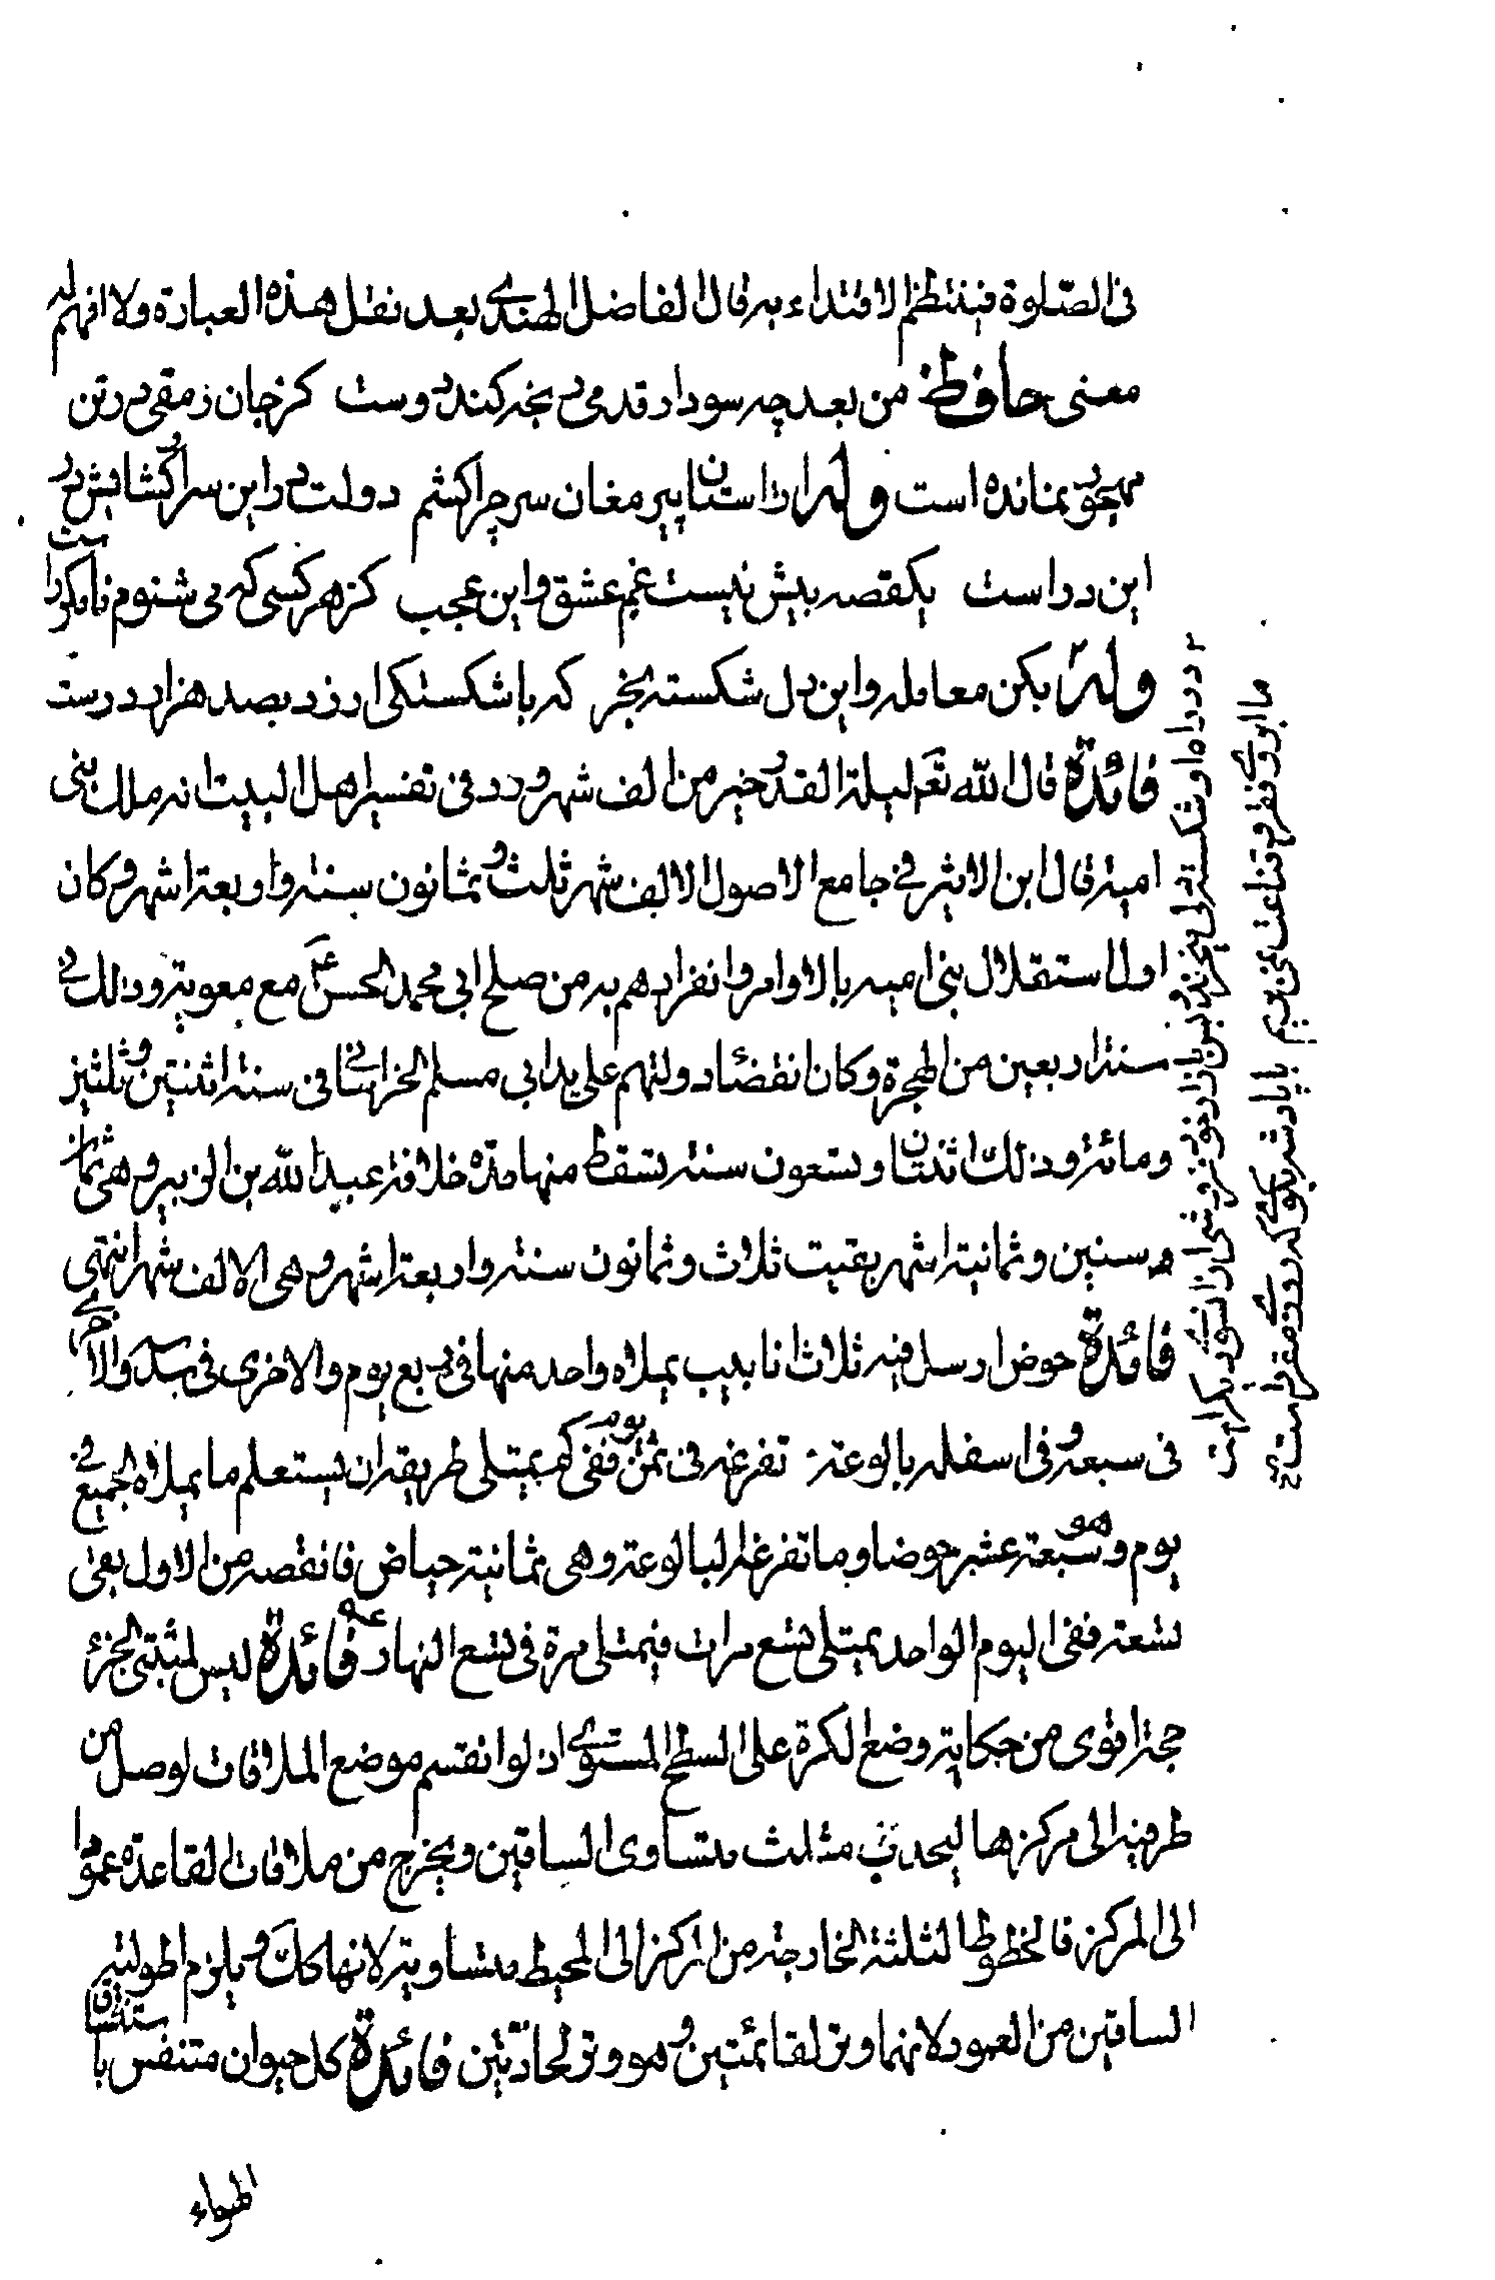 فى الصّلوة فينتظم الاقتداء به قال الفاضل الهندى بعد نقل هذه العبارة ولا افهم له
معنى حافظ من بعد چه سود ار قدمى رنجه كند دوست كز جان رمقى در تن
مهجور نمانده است وله از استان پير مغان سر چرا كشم دولت در اين سرا و كشايش در
اين در است يكقصه بيش نيست غم عشق و اين عجب كز هر كسى كه مى شنوم نامكرر است
وله بكن معامله و اين دل شكسته بخر كه با شكستكى ارزد بصد هزار درست
فائدة قال الله تعم ليلة القدر خير من الف شهر ورد فى تفسير اهل البيت انه ملك بنى
امية قال ابن الاثير فى جامع الاصول الالف شهر ثلث و ثمانون سنة واربعة اشهر وكان
اول استقلال بنى اميه بالاوامر وانفرادهم به من صلح ابى محمد الحسن ع مع معوية وذلك فى
سنة اربعين من الهجرة وكان انقضاء دولتهم على يد ابى مسلم الخراسانى فى سنة اثنتين وثلثين
ومائة وذلك اثنتان وتسعون سنة تسقط منها مدة خلافة عبد الله بن الزبير وهى ثمان
سنين وثمانية اشهر بقيت ثلاث وثمانون سنة واربعة اشهر وهى الالف شهر انتهى
فائدة حوض ارسل فيه ثلاث انابيب يملاه واحده منها فى ربع يوم والاخرى فى سدسه والاخرى
فى سبعه وفى اسفله بالوعة تفرغه فى ثمن يوم ففى كم يمتلى طريقه ان يستعلم ما يملاه الجميع فى
يوم وهو سبعة عشر حوضا وما تفرغه البالوعة وهى ثمانية حياض فانقصه من الاول بقى
تسعة ففى اليوم الواحد يمتلى تسع مرات فيمتلى مرة فى تسع النهار فائدة ليس لمثبتى الجزء
حجة اقوى من حكاية وضع الكرة على السطح المستوى اذ لو انقسم موضع الملاقات لوصل من
طرفيه الى مركزها ليحدث مثلث متساوى الساقين ويخرج من ملاقات القاعدة عمودا
الى المركز فالخطوط الثلثة الخارجة من المركز الى المحيط متساوية لانها كك ويلزم اطولية
الساقين من العمود لانهما وتر القائمتين وهو وتر لحادتين فائدة كل حيوان متنفس باستنشاق
الهواء
در راه او شكسته دلى ميخرند و بس بازار خود فروشى از آن سوى ديگر است
ما ابروى فقر و قناعت نمى بريم با پادشه بگوى كه روزى مقرر است